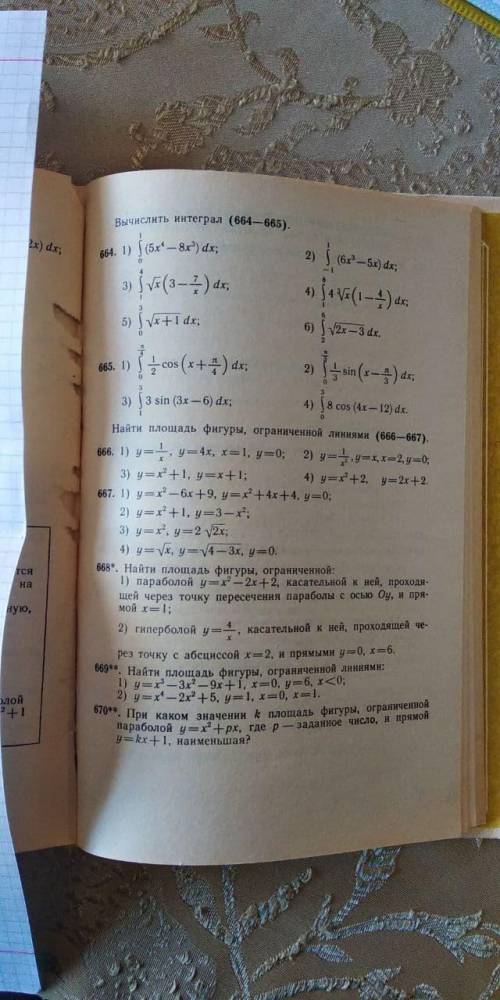 Вычислить интеграл (664—665).
2x) dx;
664. 1) ∫₀¹ (5x⁴ — 8x³) dx; 2) ∫₋₁¹ (6x³ — 5x) dx;
3) ∫₁⁴ √x (3 — 7/x) dx; 4) ∫₁⁸ 4 ∛x (1 — 4/x) dx;
5) ∫₀³ √(x+1) dx; 6) ∫₂⁶ √(2x—3) dx.
665. 1) ∫₀^(π/2) 1/2 cos (x + π/4) dx; 2) ∫₀^(π/3) 1/3 sin (x — π/3) dx;
3) ∫₁³ 3 sin (3x — 6) dx; 4) ∫₀³ 8 cos (4x — 12) dx.
Найти площадь фигуры, ограниченной линиями (666—667).
666. 1) y = 1/x, y = 4x, x = 1, y = 0; 2) y = 1/x², y = x, x = 2, y = 0;
3) y = x² + 1, y = x + 1; 4) y = x² + 2, y = 2x + 2.
667. 1) y = x² — 6x + 9, y = x² + 4x + 4, y = 0;
2) y = x² + 1, y = 3 — x²;
3) y = x², y = 2 √(2x);
4) y = √x, y = √(4 — 3x), y = 0.
668*. Найти площадь фигуры, ограниченной:
1) параболой y = x² — 2x + 2, касательной к ней, проходя-
щей через точку пересечения параболы с осью Oy, и пря-
мой x = 1;
2) гиперболой y = 4/x, касательной к ней, проходящей че-
рез точку с абсциссой x = 2, и прямыми y = 0, x = 6.
669**. Найти площадь фигуры, ограниченной линиями:
1) y = x³ — 3x² — 9x + 1, x = 0, y = 6, x < 0;
2) y = x⁴ — 2x² + 5, y = 1, x = 0, x = 1.
670**. При каком значении k площадь фигуры, ограниченной
параболой y = x² + px, где p — заданное число, и прямой
y = kx + 1, наименьшая?
тся
на
ную,
олой
² + 1